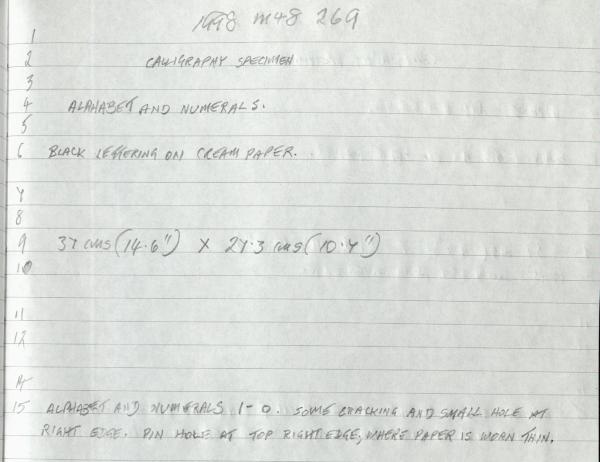 1998 M48 269
1
2 CALLIGRAPHY SPECIMEN
3
4 ALPHABET AND NUMERALS.
5
6 BLACK LETTERING ON CREAM PAPER.
7
8
9 37 cms (14.6") X 27.3 cms (10.7")
10
11
12
14
15 ALPHABET AND NUMERALS 1-0. SOME CRACKING AND SMALL HOLE AT
RIGHT EDGE. PIN HOLE AT TOP RIGHT EDGE, WHERE PAPER IS WORN THIN.